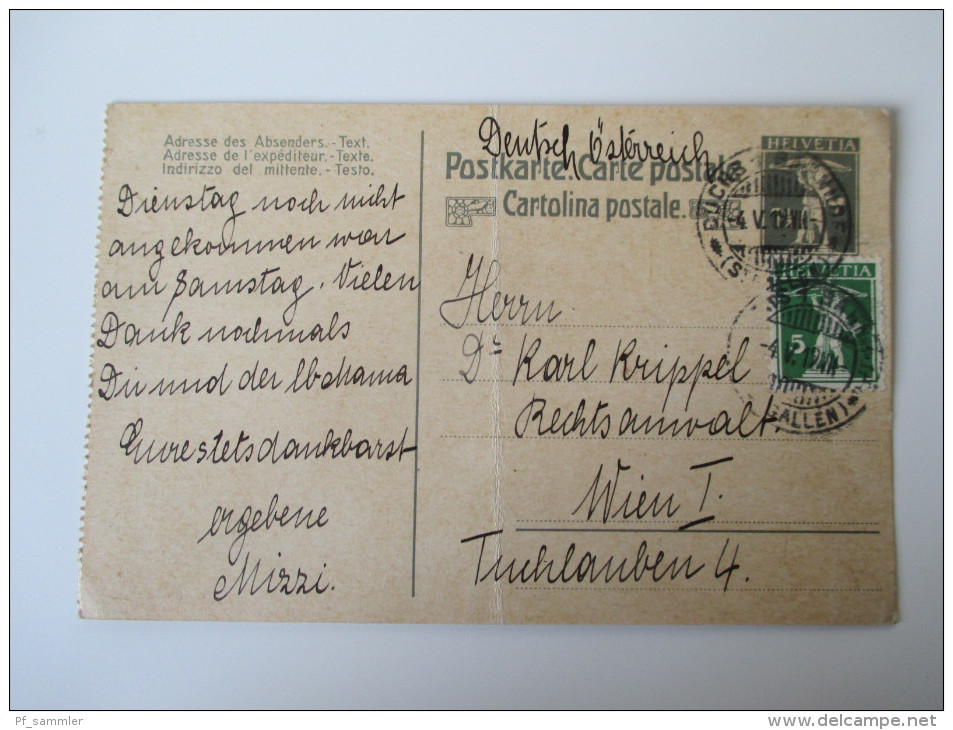 Adresse des Absenders.-Text.
Adresse de l'expéditeur.-Texte.
Indirizzo del mittente.-Testo.
Dienstag noch nicht
angekommen war
am Samstag. Vielen
Dank nochmals
Dir und der lb. Mama
Eure stets dankbarst
ergebene
Mizzi.
Deutsch, Österreich
Postkarte. Carte postale.
Cartolina postale.
HELVETIA
4. V.
HELVETIA
5
4. V.
ALLEN)
Herrn
Dr Karl Krippel
Rechtsanwalt,
Wien I.
Tuchlauben 4.
Pf_sammler
www.delcampe.net